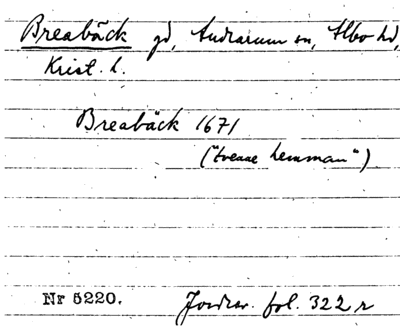 Breabäck gd, Andrarum sn, Albo hd,
Krist. l.
Breabäck 1671
("tvenne hemman")
Nr 5220. Jordrev. fol. 322 r